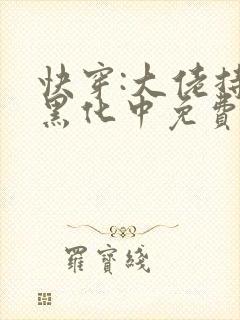 快穿:大佬持
黑化中免費
羅寶綫